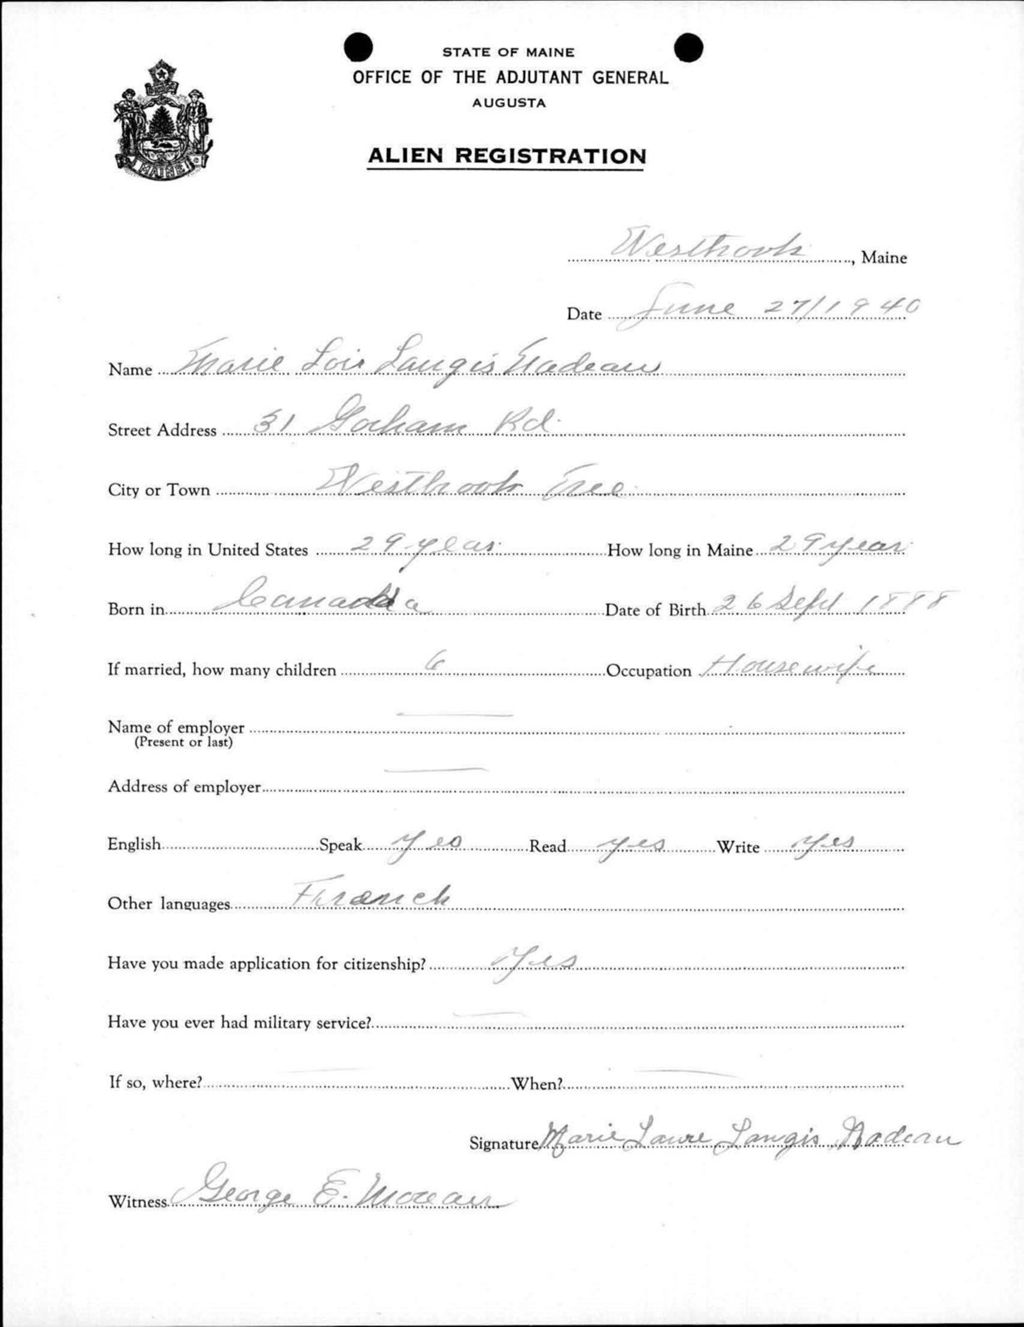 STATE OF MAINE
OFFICE OF THE ADJUTANT GENERAL
AUGUSTA
ALIEN REGISTRATION
Westbrook, Maine
Date June 27/1940
Name Marie Lois Langis Nadeau
Street Address 31 Gorham Rd.
City or Town Westbrook Me
How long in United States 29 year How long in Maine 29 year
Born in Canada Date of Birth 26 Sept 1888
If married, how many children 6 Occupation Housewife
Name of employer
(Present or last)
Address of employer
English Speak yes Read yes Write yes
Other languages French
Have you made application for citizenship? Yes
Have you ever had military service?
If so, where? When?
Signature Marie Laure Langis Nadeau
Witness George E. Moreau